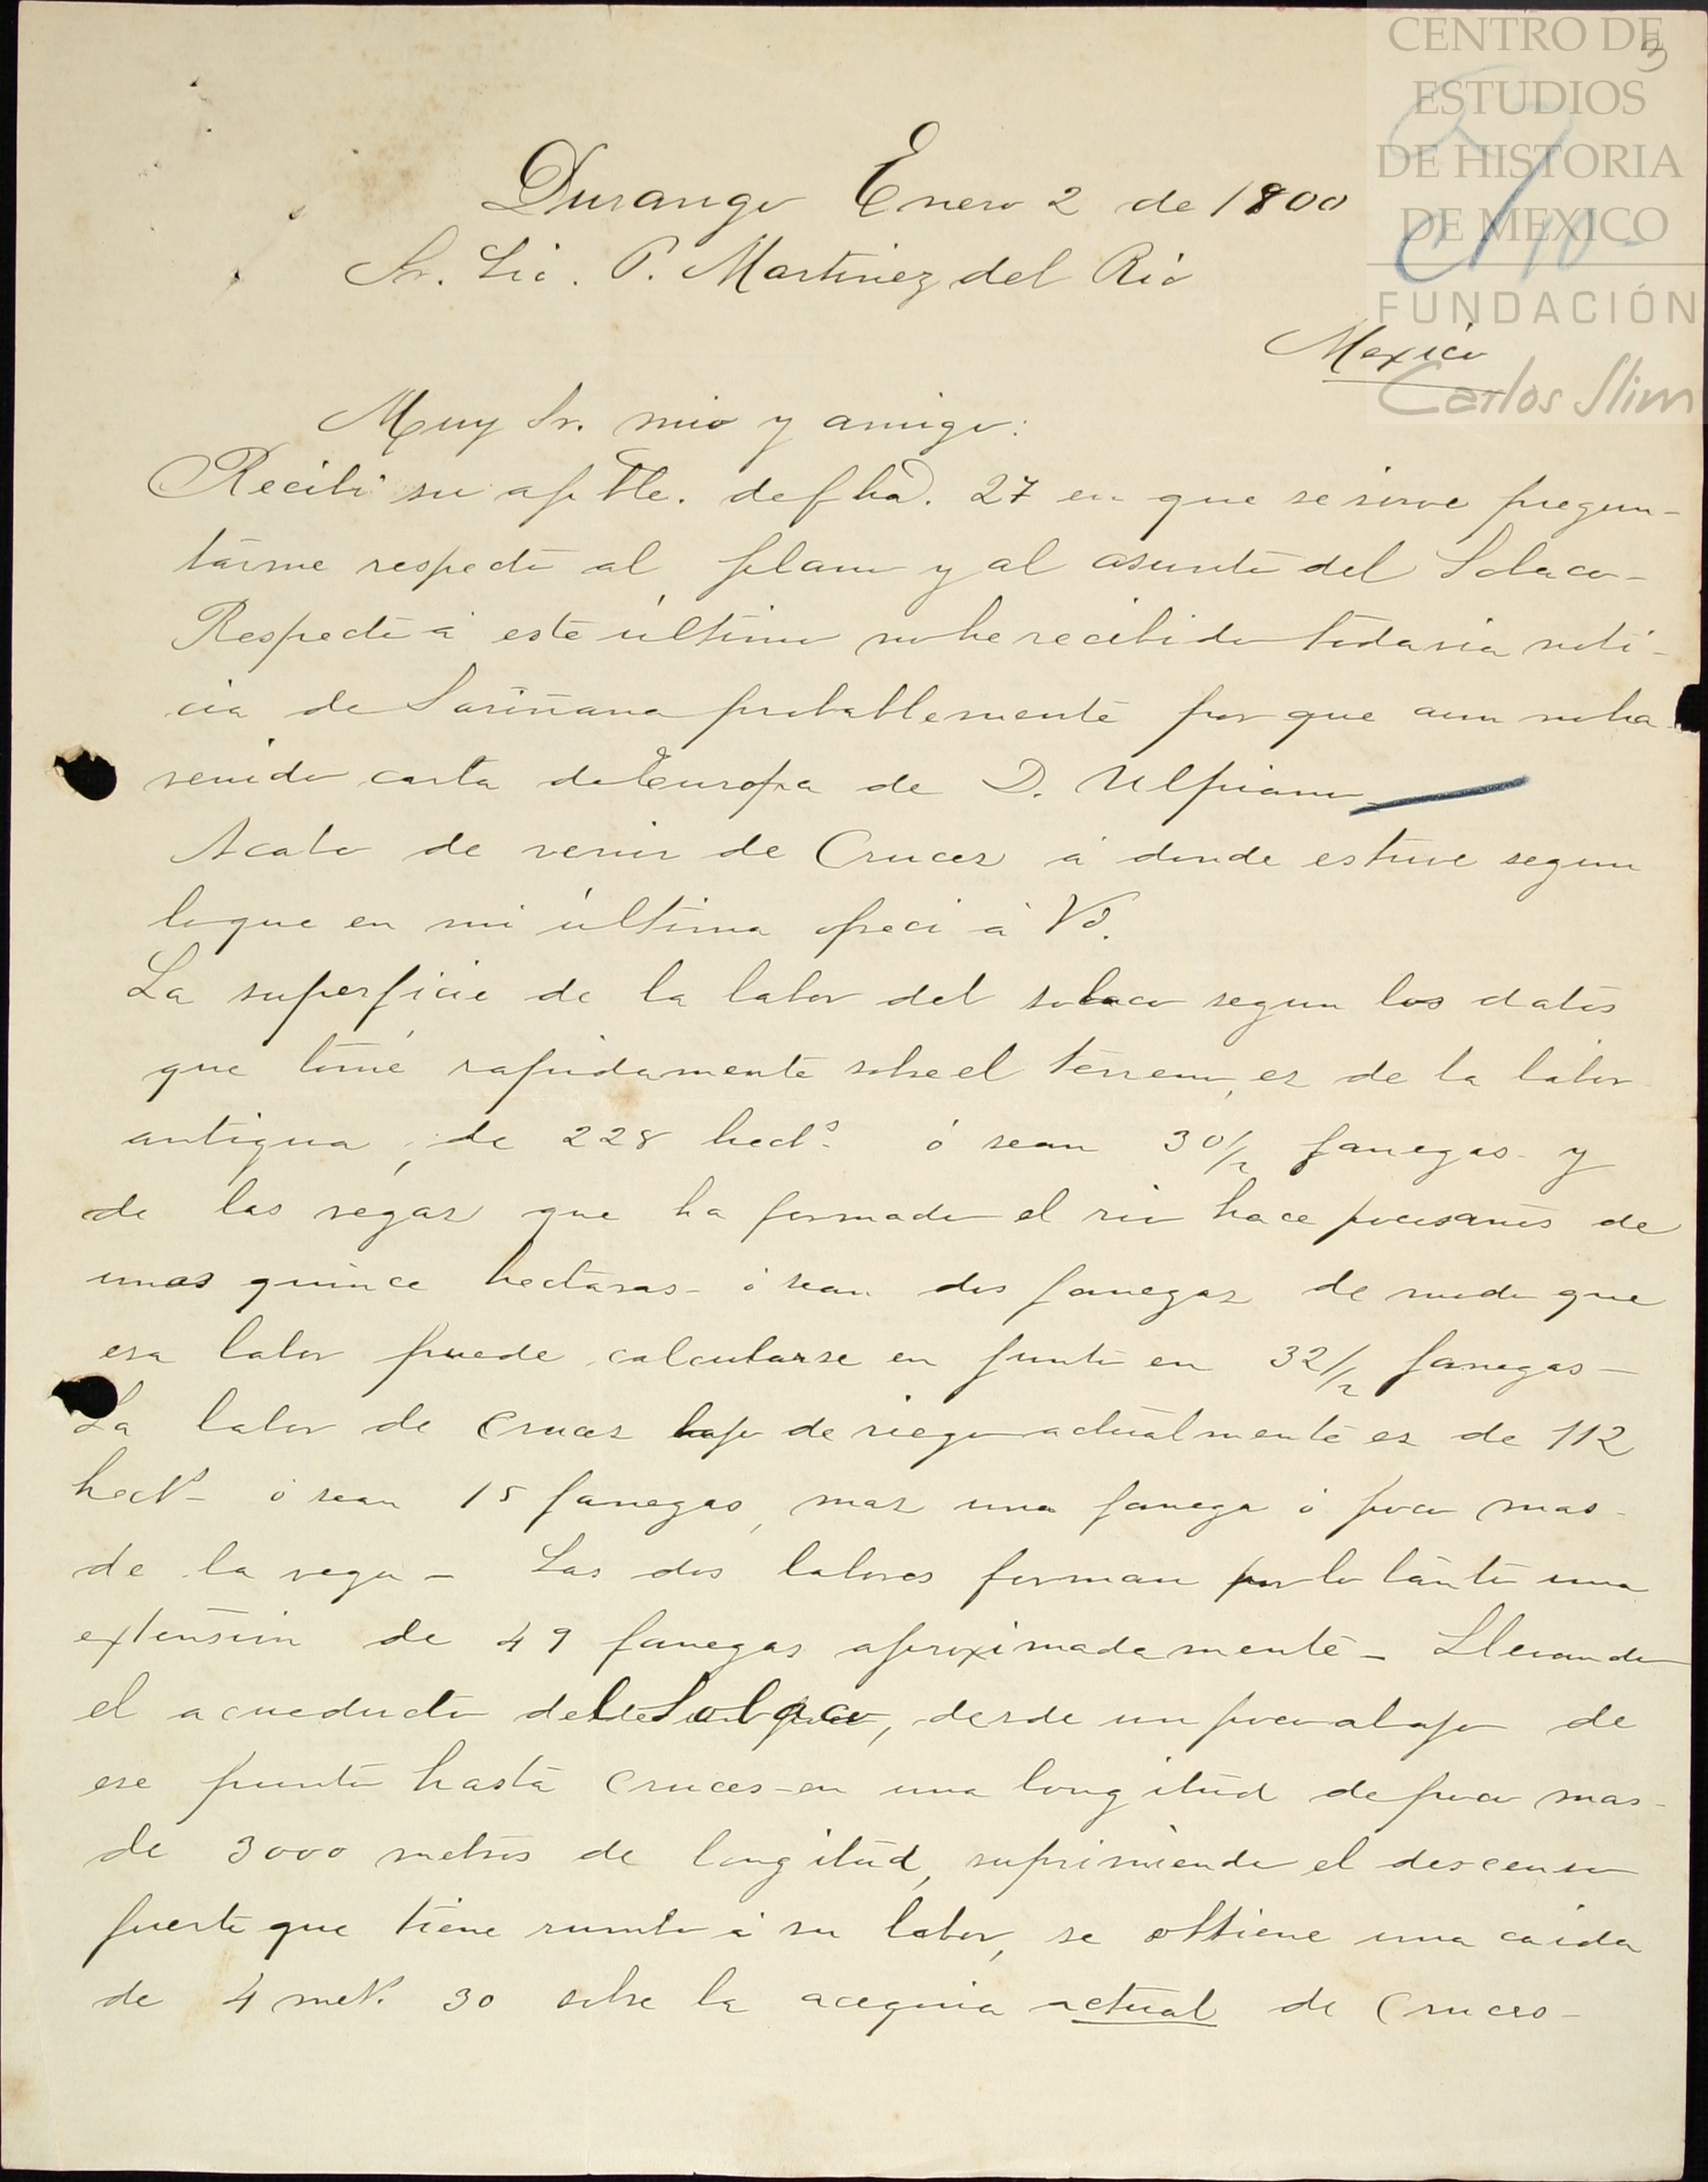 CENTRO DE
ESTUDIOS
DE HISTORIA
DE MEXICO
FUNDACIÓN
Carlos Slim
3
Durango Enero 2 de 1800
Sr. Lic. P. Martinez del Rio
Mexico
Muy Sr. mio y amigo:
Recibi su apble. de fha. 27 en que se sirve pregun-
tárme respecto al plano y al asunto del Solaco-
Respecto á este último no he recibido todavia noti-
cia de Sariñana probablemente por que aun no ha
venido carta de Europa de D. Ulpiano
Acabo de venir de Cruces á donde estuve segun
lo que en mi última ofreci á Vd.
La superficie de la labor del solaco segun los datos
que tomé rapidamente sobre el terreno, es de la labor
antigua, de 228 hects. ó sean 30 1/2 fanegas y
de las vegas que ha formado el rio hace pocos anos de
unas quince hectaras- ó sean dos fanegas de modo que
esa labor puede calcularse en junto en 32 1/2 fanegas-
La labor de Cruces bajo de riego actualmente es de 112
hects- ó sean 15 fanegas, mas una fanega ó poco mas
de la vega- Las dos labores forman por lo tánto una
extension de 49 fanegas aproximadamente- Llevando
el acueducto del Solaco, desde un poco abajo de
ese punto hasta Cruces-en una longitud de poco mas
de 3000 metros de longitud, suprimiendo el descenso
fuerte que tiene rumbo á su labor, se obtiene una caida
de 4 mets. 30 sobre la acequia actual de Cruces-